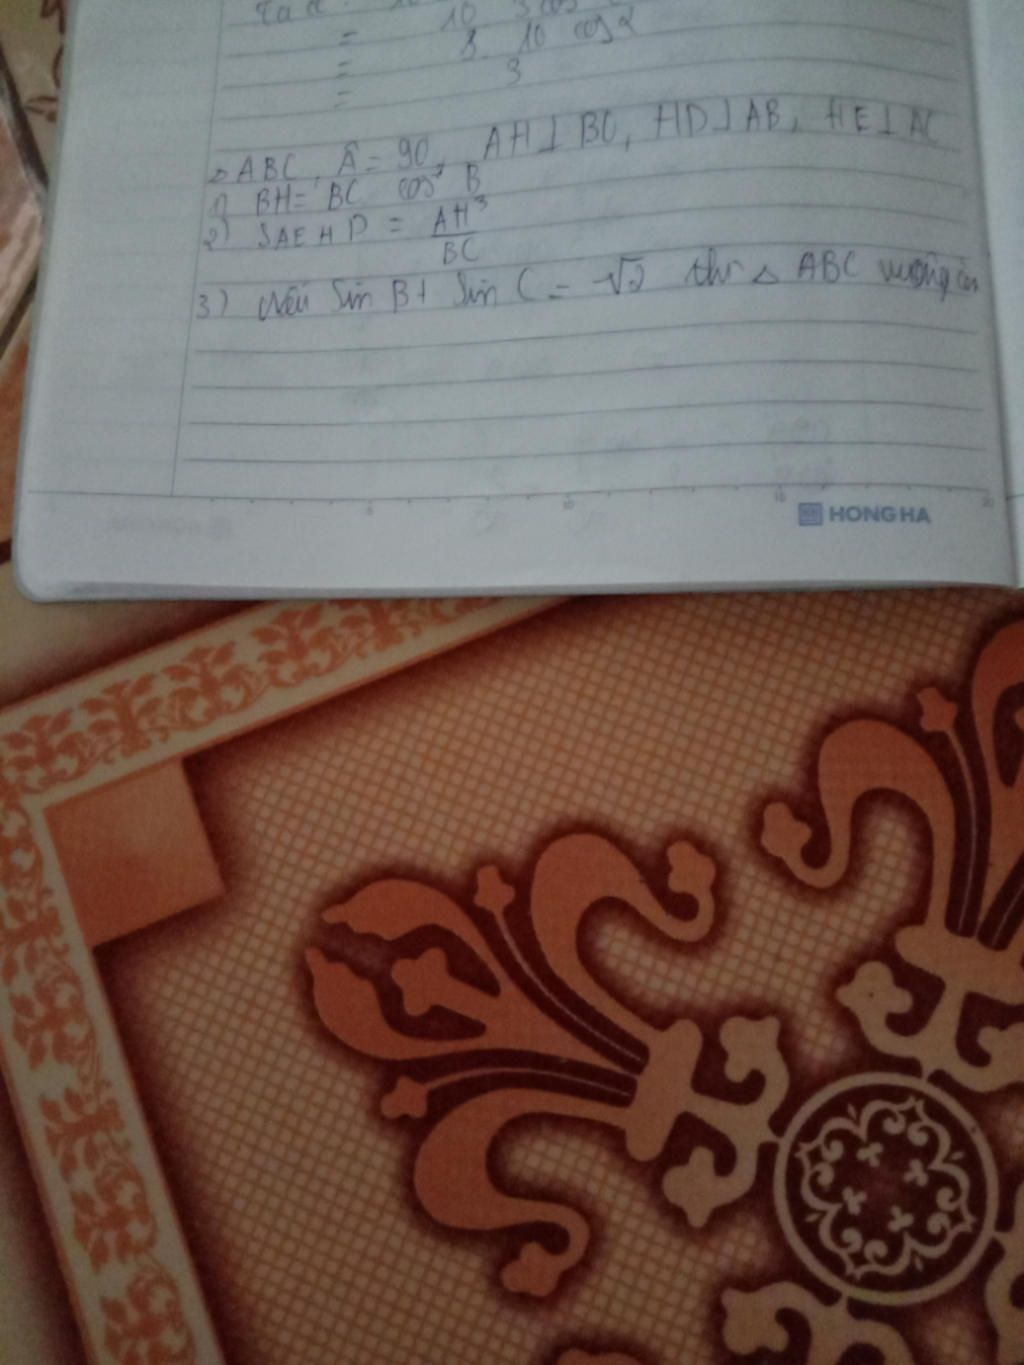 = 10 3 cos
= 8 10 cos α
= 3
△ABC, Â = 90, AH ⊥ BC, HD ⊥ AB, HE ⊥ AC
1) BH = BC cos² B
2) SAEHD = AH³/BC
3) Nếu Sin B + Sin C = √2 thì △ ABC vuông cân
5 10 15 20
HONG HA